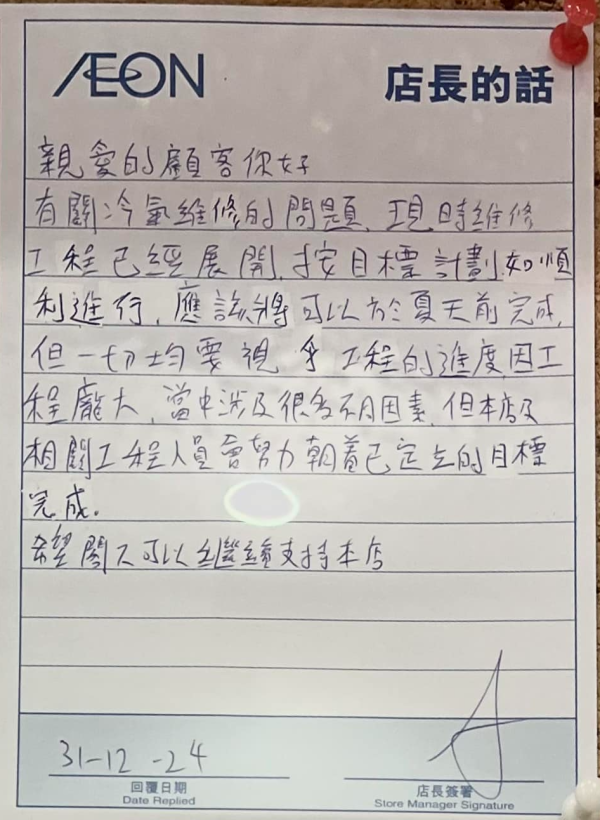 ÆON
店長的話
親愛的顧客你好
有關冷氣維修的問題,現時維修
工程已經展開,按目標計劃,如順
利進行,應該將可以於夏天前完成,
但一切均要視乎工程的進度,因工
程龐大,當中涉及很多不同因素,但本店及
相關工程人員會努力朝着已定立的目標
完成.
希望閣下可以繼續支持本店
31-12-24
回覆日期
Date Replied
店長簽署
Store Manager Signature